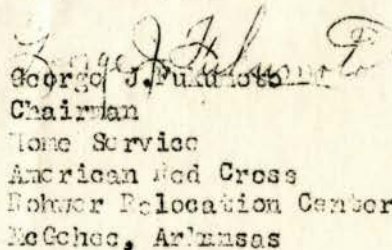 George J. Fukumoto
George J. Fukumoto
Chairman
Home Service
American Red Cross
Rohwer Relocation Center
McGehee, Arkansas